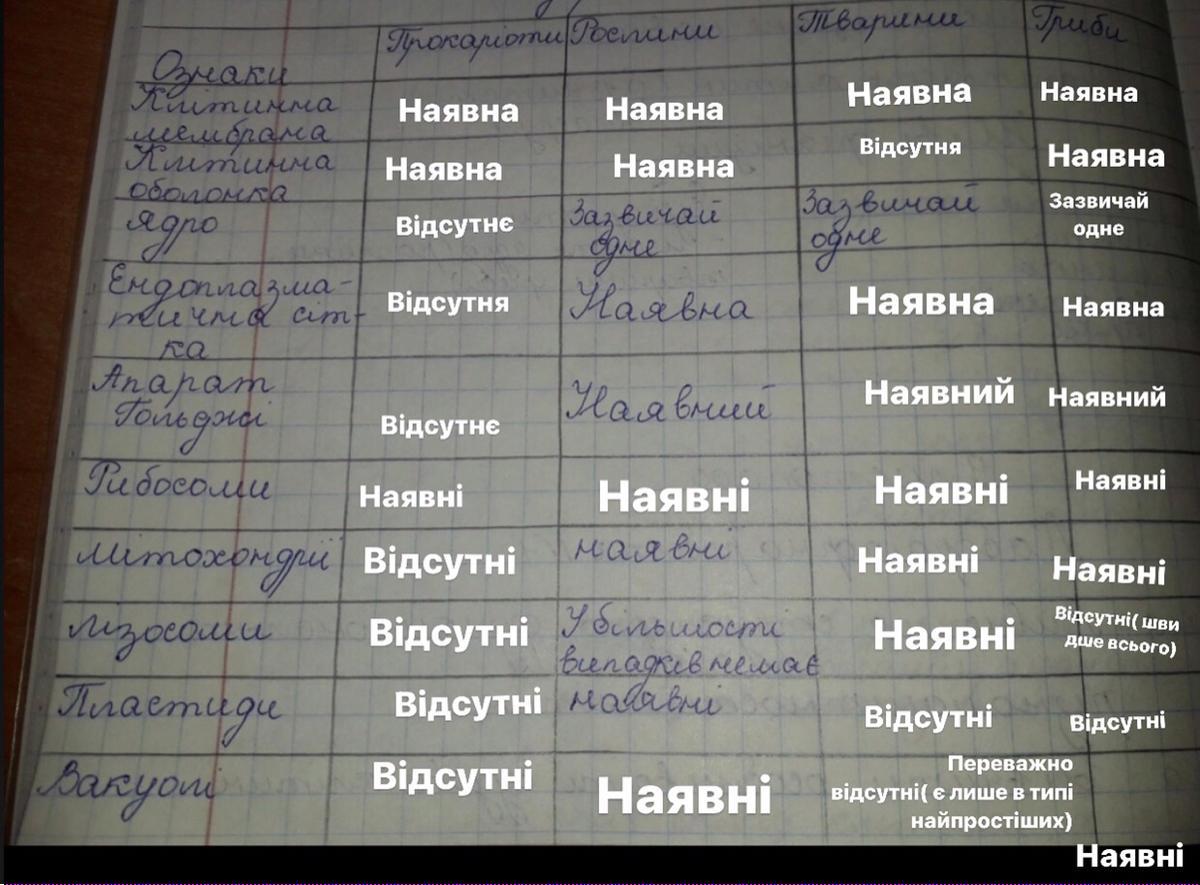 Прокаріоти Рослини Тварини Гриби
Ознаки
Клітинна
мембрана
Наявна Наявна Наявна Наявна
Клітинна
оболонка
Наявна Наявна Відсутня Наявна
Ядро
Відсутнє
Зазвичай
одне
Зазвичай
одне
Зазвичай
одне
Ендоплазма-
тична сіт-
ка
Відсутня Наявна Наявна Наявна
Апарат
Гольджі
Відсутнє Наявний Наявний Наявний
Рибосоми Наявні Наявні Наявні Наявні
мітохондрії Відсутні наявні Наявні Наявні
лізосоми Відсутні
У більшості
випадків немає
Наявні
Відсутні( шви
дше всього)
Пластиди Відсутні наявні Відсутні Відсутні
Вакуолі Відсутні Наявні
Переважно
відсутні( є лише в типі
найпростіших)
Наявні